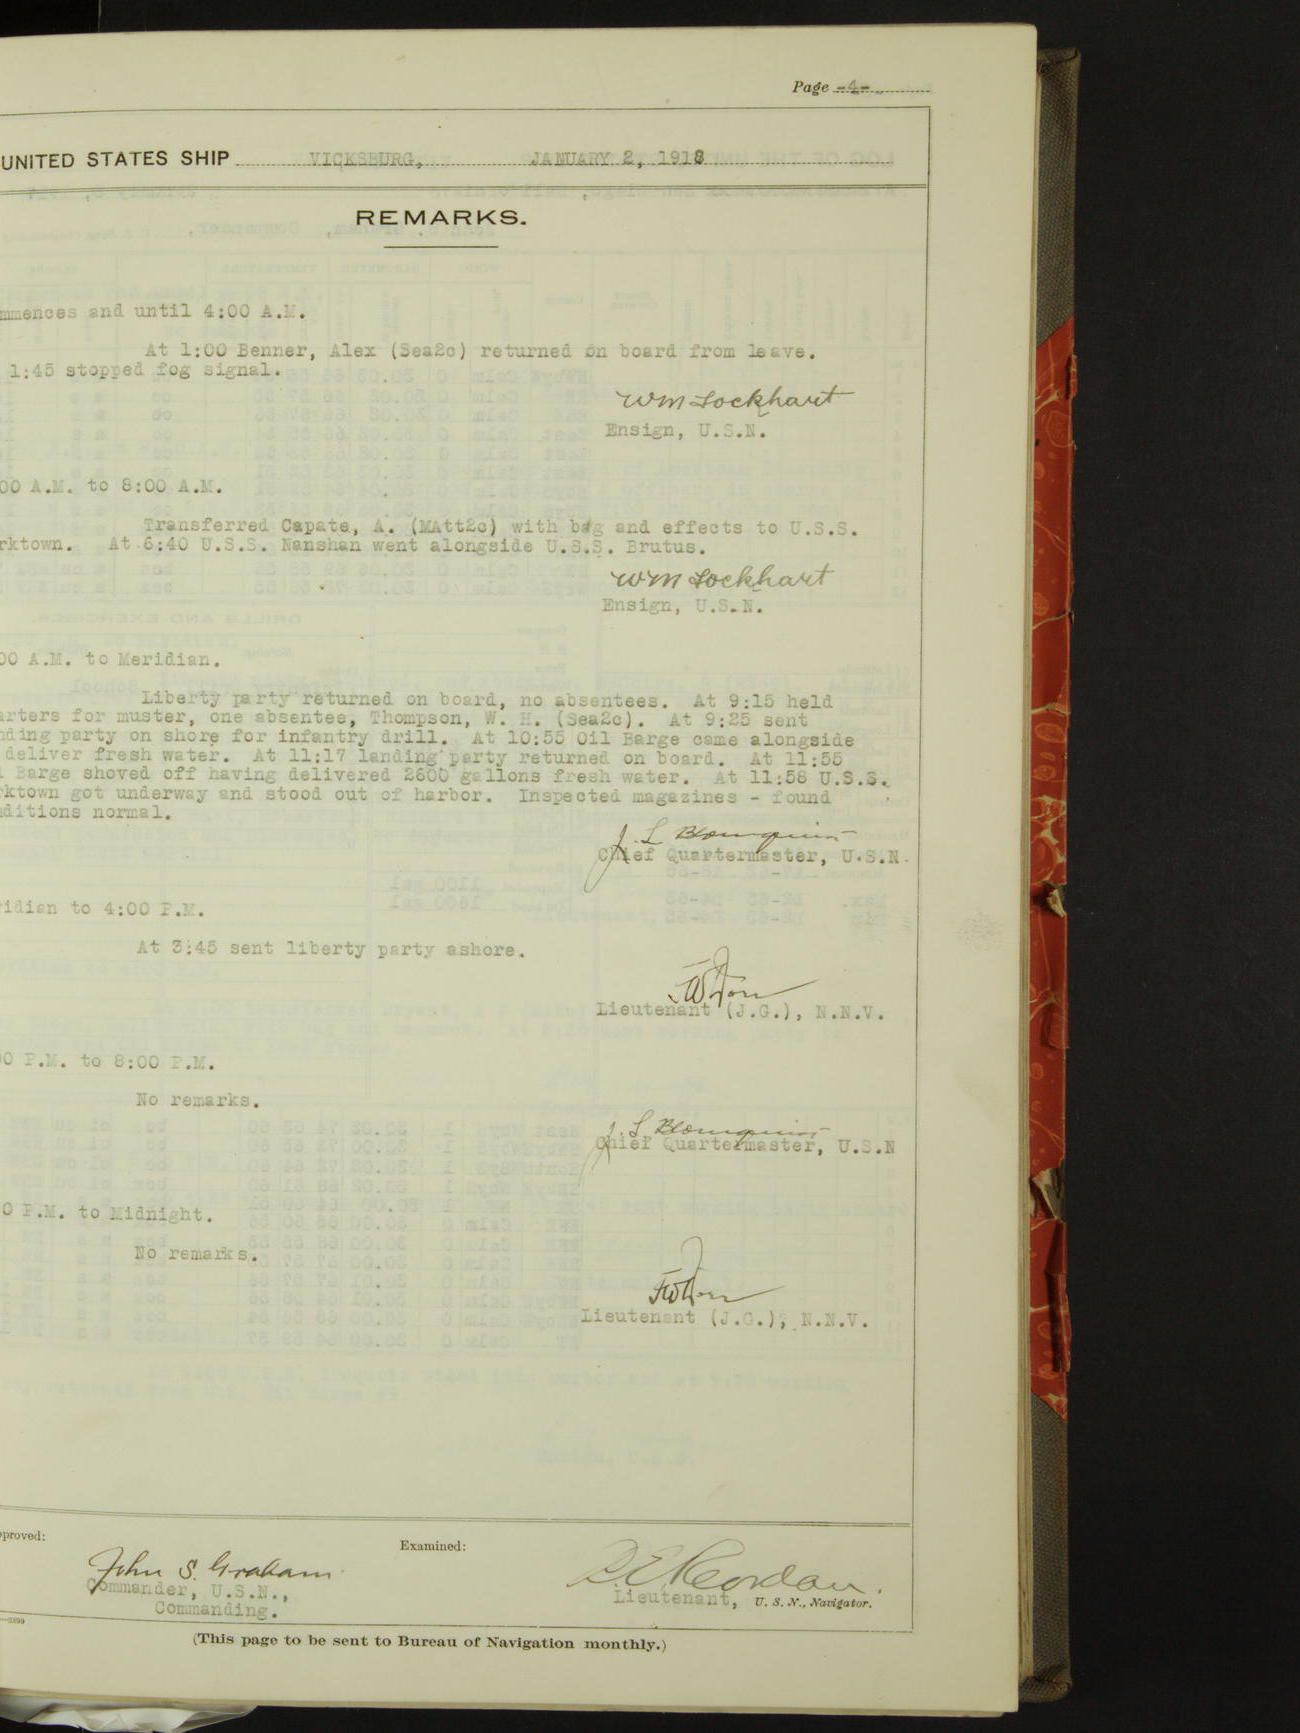 Page -4-
UNITED STATES SHIP VICKSBURG, JANUARY 2, 1918
REMARKS.
mmences and until 4:00 A.M.
At 1:00 Benner, Alex (Sea2c) returned on board from leave.
1:45 stopped fog signal.
Wm Lockhart
Ensign, U.S.N.
00 A.M. to 8:00 A.M.
Transferred Capate, A. (MAtt2c) with bag and effects to U.S.S.
rktown. At 6:40 U.S.S. Nanshan went alongside U.S.S. Brutus.
Wm Lockhart
Ensign, U.S.N.
00 A.M. to Meridian.
Liberty party returned on board, no absentees. At 9:15 held
arters for muster, one absentee, Thompson, W. H. (Sea2c). At 9:25 sent
nding party on shore for infantry drill. At 10:55 Oil Barge came alongside
deliver fresh water. At 11:17 landing party returned on board. At 11:55
l Barge shoved off having delivered 2600 gallons fresh water. At 11:58 U.S.S.
rktown got underway and stood out of harbor. Inspected magazines - found
nditions normal.
J. L.
Chief Quartermaster, U.S.N.
ridian to 4:00 P.M.
At 3:45 sent liberty party ashore.
Lieutenant (J.G.), N.N.V.
00 P.M. to 8:00 P.M.
No remarks.
J. L.
Chief Quartermaster, U.S.N
0 P.M. to Midnight.
No remarks.
Lieutenant (J.G.), N.N.V.
pproved:
Examined:
John S. Graham
Commander, U.S.N.,
Commanding.
Lieutenant, U. S. N., Navigator.
(This page to be sent to Bureau of Navigation monthly.)